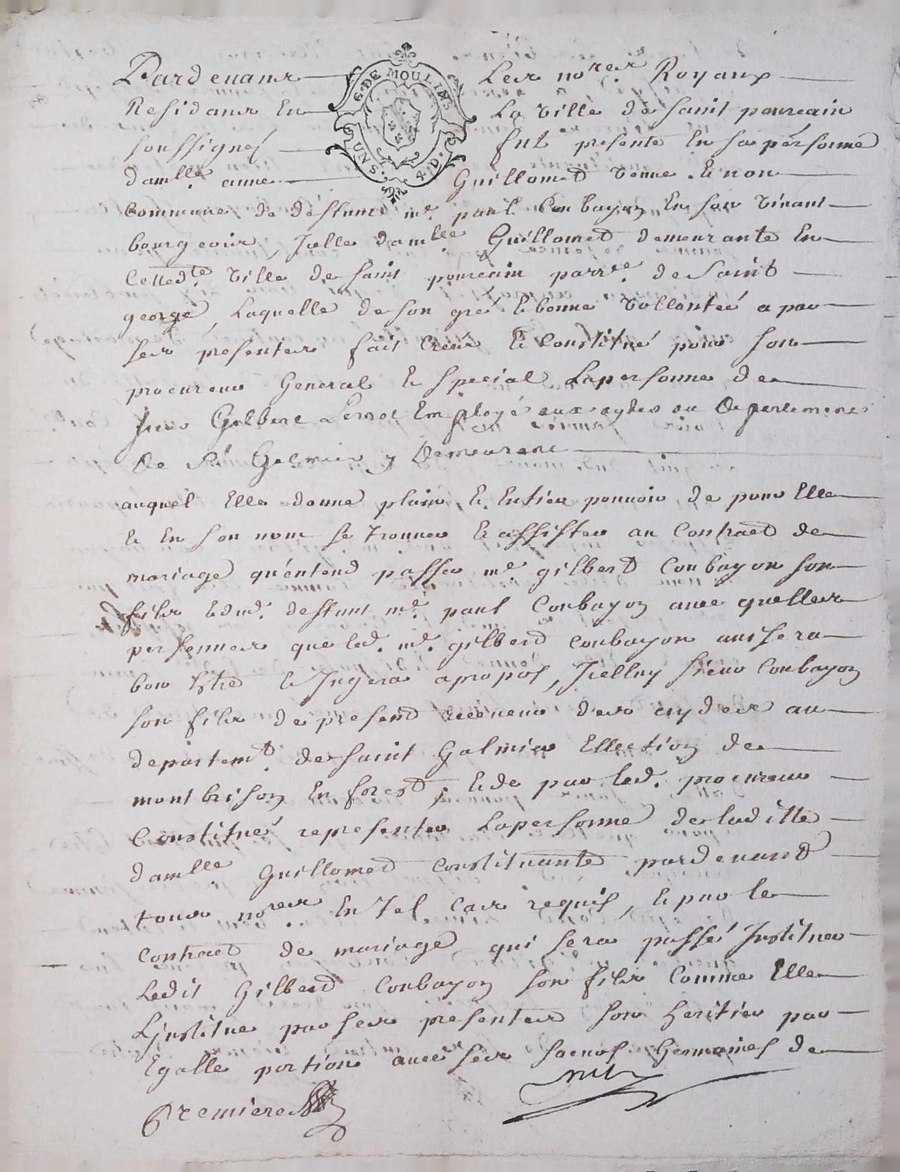 Pardevant Les no.res Royaux
G. DE MOULINS
UN S. 4 D.
Residans En La ville de saint pourcain
soussignes fut presente En sa personne
damlle. anne Guillomet veuve & non
Commune de deffunt me. paul Coubayon En son vivant
bourgeois, Icelle damlle Guillomet demeurante En
Cettedte. ville de saint pourcain parr.se de saint
george, Laquelle de son gré & bonne vollonteé a par
Ses presentes fait Créé & Constitué pour son
procureur General & special Lapersonne de
sieur Gilbert Employé aux aydes au Departement
De St. Galmier y Demeurant
auquel Elle donne plain & Entier pouvoir de pour Elle
& En son nom se trouver & assister au Contract de
mariage qu'entend passer me. gilbert Coubayon son
fils & dud. deffunt me. paul Coubayon avec quelles
personnes que led. me. gilberd Coubayon avisera
bon Estre & Jugera apropos, Icelluy sieur Coubayon
son fils de present receveur des aydes au
departemt. de saint Galmier Ellection de
montbrison En forest, & de par led. procureur
Constitué representer Lapersonne de laditte
damlle Guillomet Constituante pardevant
tous no.res En tel Cas requis, & par le
Contract de mariage qui sera passé Instituer
Ledit Gilberd Coubayon son fils Comme Elle
L'institue par ses presentes son heritier par
Egalle portion avec ses soeurs Germaines de
Premiere